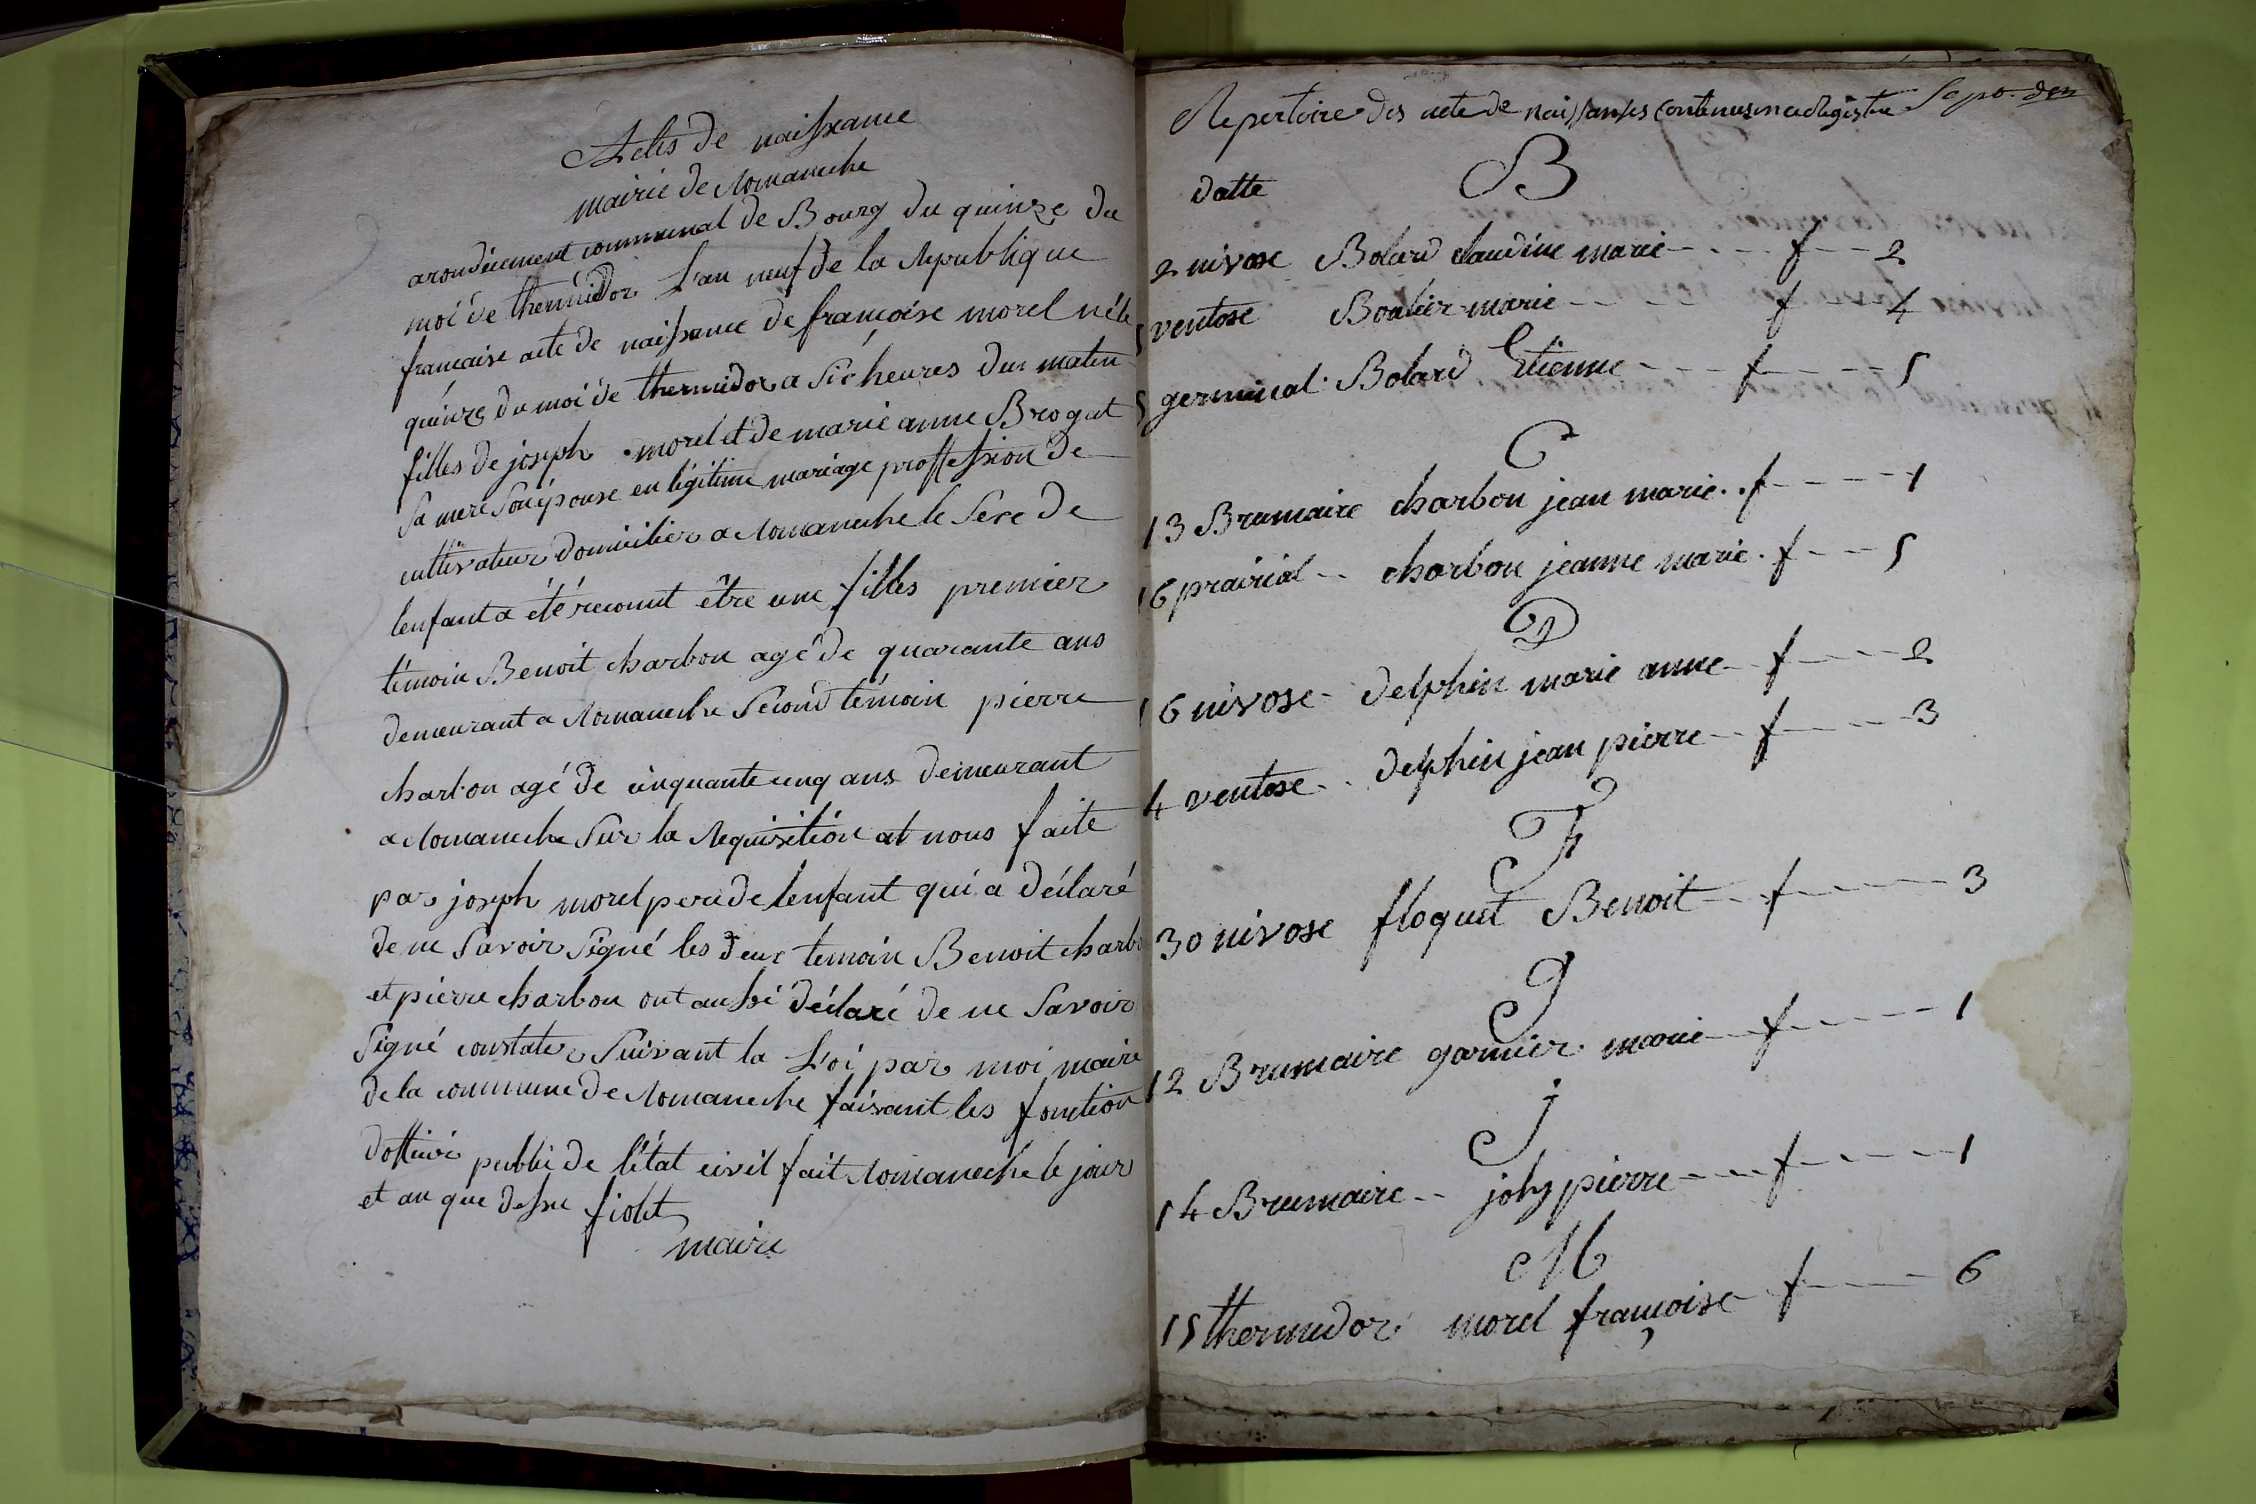 Actes de naissance
mairie de Romaneche
arondicement communal de Bourg du quinze du
moi de thermidor L'an neuf de la Republique
francaise acte de naissance de francoise morel née le
quinze du moi de thermidor a sic heures dur matin
filles de joseph morel et de marie anne Brogat
sa mere son épouse en légitime mariage proffession de
cultivateur domicilier a Romaneche le sexe de
lenfant a été reconnt être une filles premier
témoin Benoit charbon agé de quarante ans
demeurant a Romaneche second témoin pierre
charbon agé de cinquante cinq ans demeurant
a Romaneche sur la Requisition at nous faite
par joseph morel pere de lenfant qui a déclaré
de ne savoir signé les deux temoin Benoit charbo
et pierre charbon ont aussi déclaré de ne savoir
signé constater suivant la Loi par moi maire
de la commune de Romaneche faisant les fonction
dofficié public de l'état civil fait Romaneche le jour
et an que dessu fiolet
maire
Repertoire des acte de naissances contenus en ce Registre
datte
B
2 nivose Bolard claudine marie f 2
ventose Boulier marie f 4
5 germinal Bolard Etienne f 5
C
13 Brumaire charbon jean marie f 1
16 prairial charbon jeanne marie f 5
D
16 nivose delphin marie anne f 2
4 ventose delphin jean pierre f 3
F
30 nivose floquet Benoit f 3
G
12 Brumaire garnier marie f 1
j
14 Brumaire joly pierre f 1
M
15 thermidor morel françoise f 6